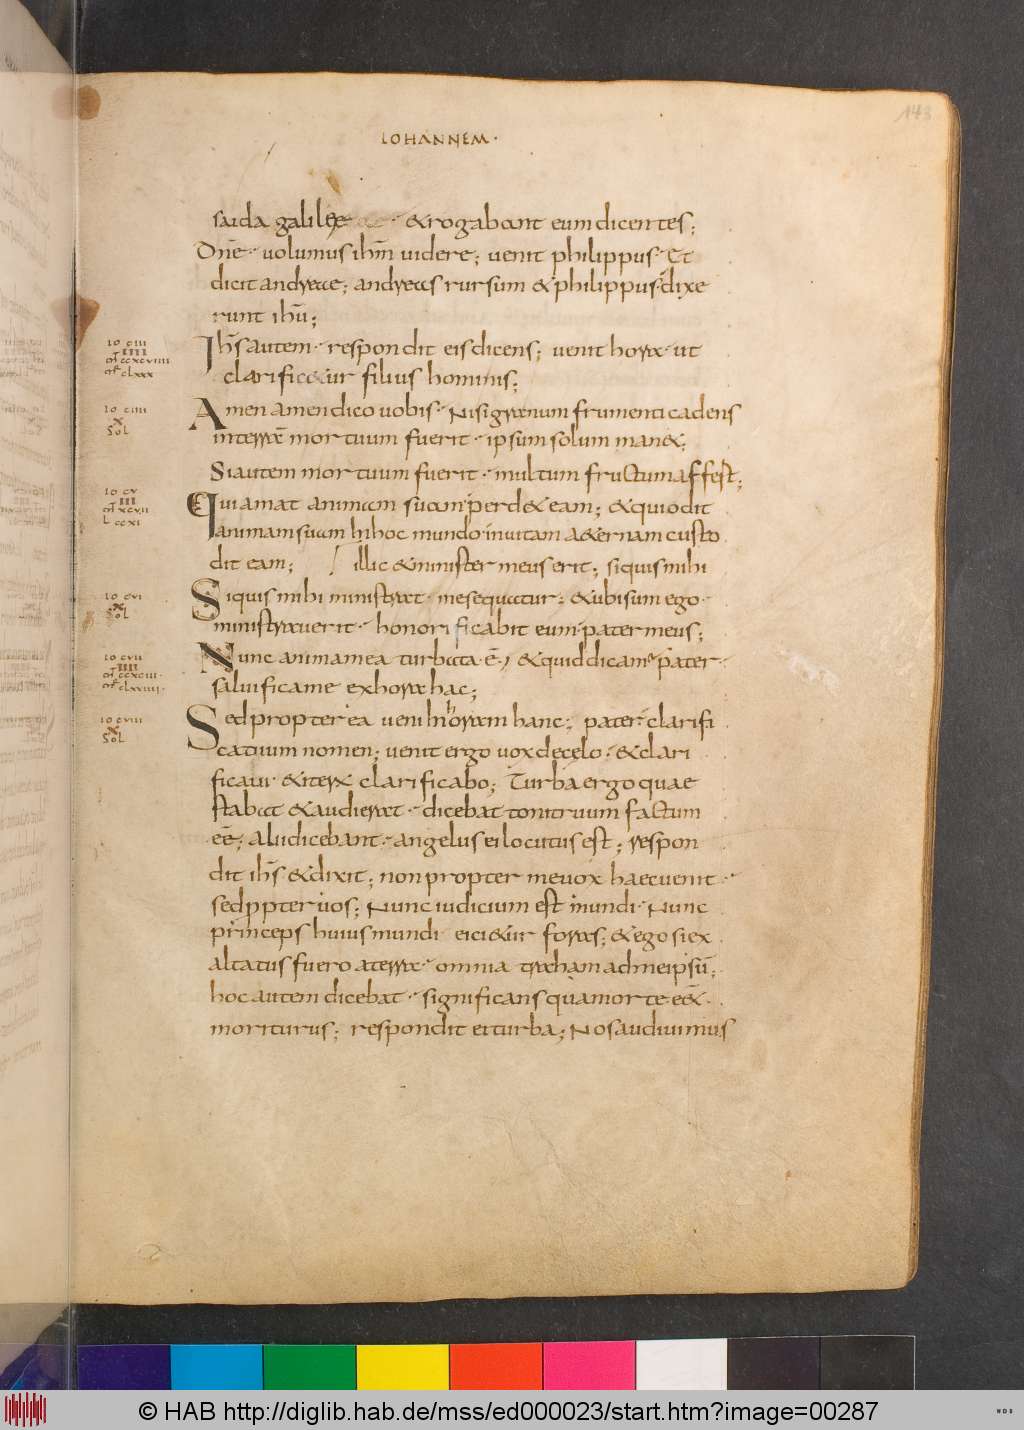 143
IOHANNEM·
saida galileae · & rogabant eum dicentes;
Dnē · uolumus ihm̄ uidere; uenit philippus · Et
dicit andreae; andreas rursum & philippus dixe
runt ihū;
IO CIII
IIII
CCXCVIIII
CLXXX
Ihs̄ autem · respondit eis dicens; uenit hora · ut
clarificetur filius hominis;
IO CIIII
X
SOL
Amen amen dico uobis · Nisi granum frumenti cadens
in terrā mortuum fuerit · ipsum solum man&;
Si autem mortuum fuerit · multum fructum affest;
IO CV
III
XCVII
L CCXI
Qui amat animam suam perd& eam; & qui odit
animam suam in hoc mundo in uitam a&ernam custo
dit eam; illic & minister meus erit; siquis mihi
IO CVI
X
SOL
Siquis mihi ministrat · me sequatur; & ubi sum ego ·
ministrauerit · honorificabit eum pater meus;
IO CVII
IIII
CCXCIII
CLXVIIII
Nunc anima mea turbata ē; & quid dicam pater ·
saluifica me ex hora hac;
IO CVIII
X
SOL
Sed propterea ueni in horam hanc; pater clarifi
ca tuum nomen; uenit ergo uox de cęlo · & clari
ficaui · & iterū clarificabo; Turba ergo quae
stabat & audierat · dicebat tonitruum factum
eē; Alii dicebant · angelus ei locutus est; respon
dit ihs̄ & dixit; non propter me uox haec uenit ·
sed ppter uos; Nunc iudicium est mundi · Nunc
princeps huius mundi eici&ur foras; & ego si ex
altatus fuero a terra · omnia traham ad me ipsū;
hoc autem dicebat · significans qua morte eēt
moriturus; respondit ei turba; Nos audiuimus
© HAB http://diglib.hab.de/mss/ed000023/start.htm?image=00287